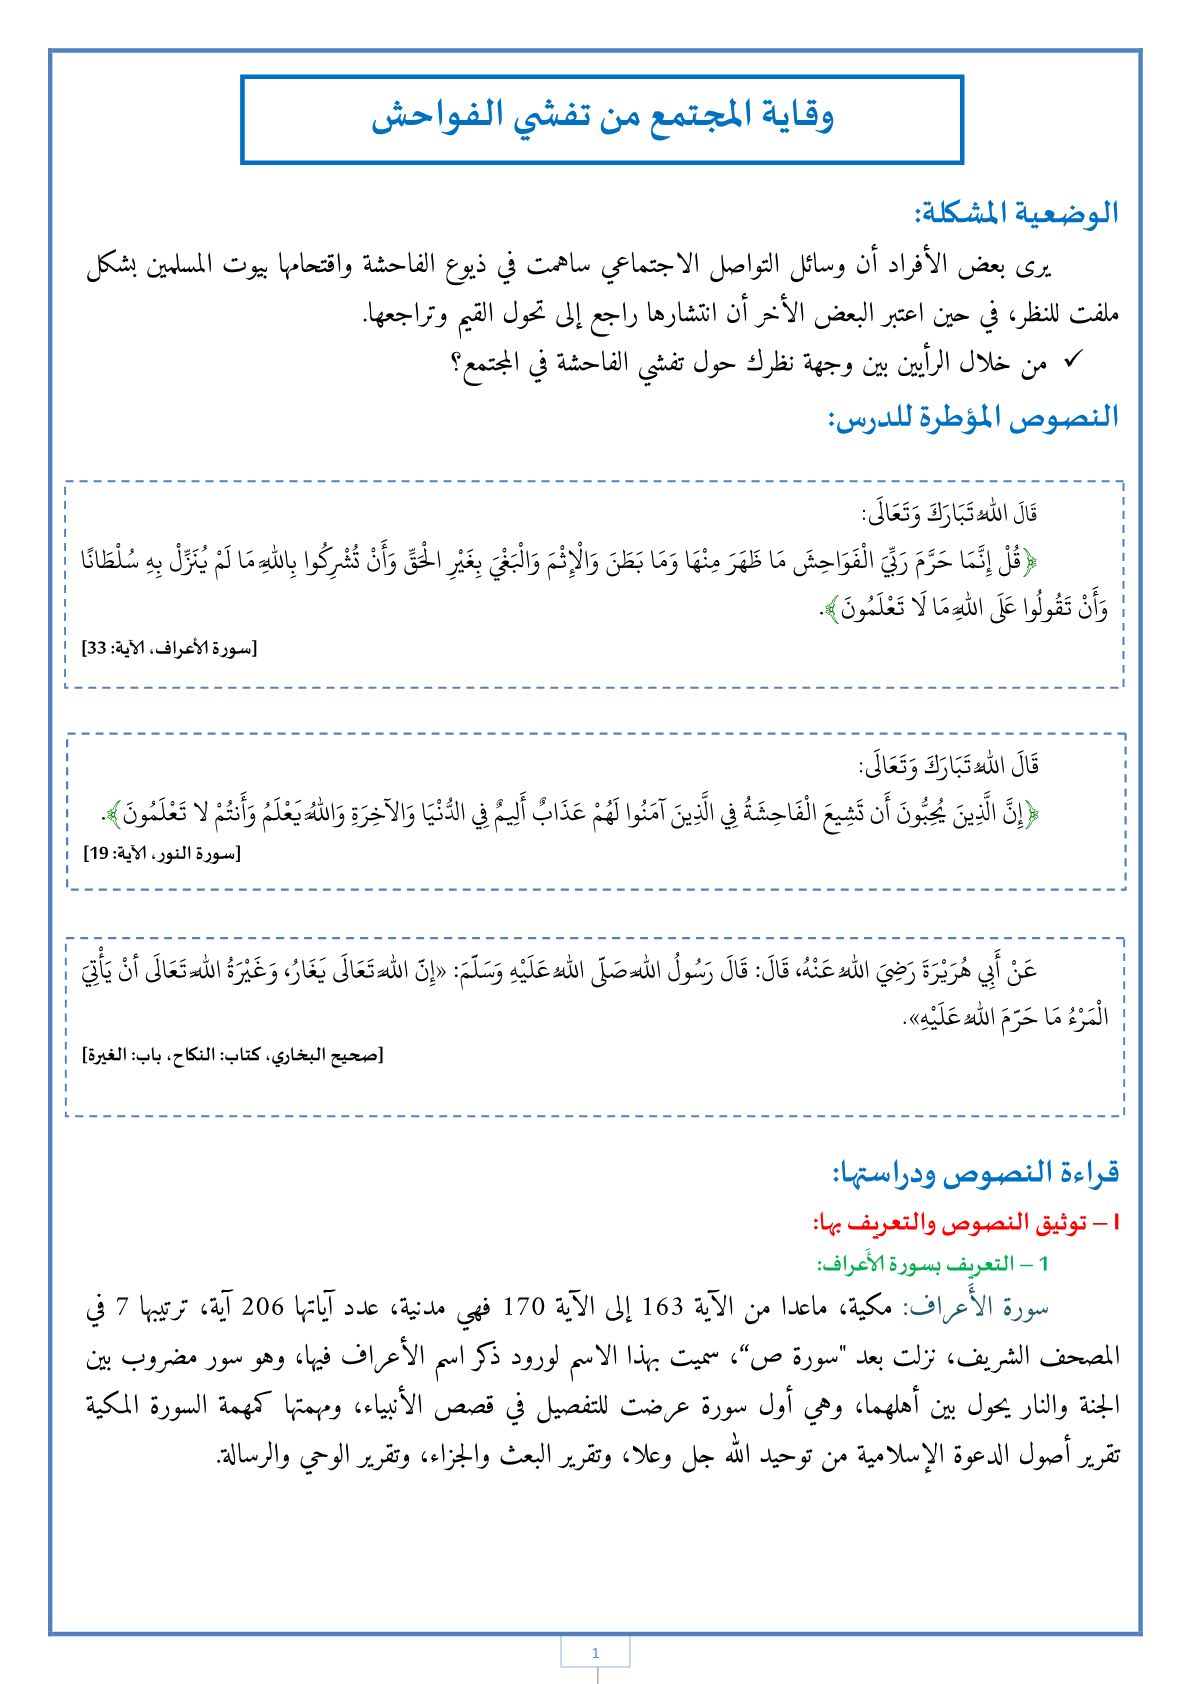 وقاية المجتمع من تفشي الفواحش
الوضعية المشكلة:
يرى بعض الأفراد أن وسائل التواصل الاجتماعي ساهمت في ذيوع الفاحشة واقتحامها بيوت المسلمين بشكل
ملفت للنظر، في حين اعتبر البعض الأخر أن انتشارها راجع إلى تحول القيم وتراجعها.
✓ من خلال الرأيين بين وجهة نظرك حول تفشي الفاحشة في المجتمع؟
النصوص المؤطرة للدرس:
قَالَ اللهُ تَبَارَكَ وَتَعَالَى:
﴿قُلْ إِنَّمَا حَرَّمَ رَبِّيَ الْفَوَاحِشَ مَا ظَهَرَ مِنْهَا وَمَا بَطَنَ وَالْإِثْمَ وَالْبَغْيَ بِغَيْرِ الْحَقِّ وَأَنْ تُشْرِكُوا بِاللهِ مَا لَمْ يُنَزِّلْ بِهِ سُلْطَانًا
وَأَنْ تَقُولُوا عَلَى اللهِ مَا لَا تَعْلَمُونَ﴾.
[سورة الأعراف، الآية: 33]
قَالَ اللهُ تَبَارَكَ وَتَعَالَى:
﴿إِنَّ الَّذِينَ يُحِبُّونَ أَن تَشِيعَ الْفَاحِشَةُ فِي الَّذِينَ آمَنُوا لَهُمْ عَذَابٌ أَلِيمٌ فِي الدُّنْيَا وَالآخِرَةِ وَاللهُ يَعْلَمُ وَأَنتُمْ لا تَعْلَمُونَ﴾.
[سورة النور، الآية: 19]
عَنْ أَبِي هُرَيْرَةَ رَضِيَ اللهُ عَنْهُ، قَالَ: قَالَ رَسُولُ اللهِ صَلّى اللهُ عَلَيْهِ وَسَلّمَ: «إِنّ اللهَ تَعَالَى يَغَارُ، وَغَيْرَةُ اللهِ تَعَالَى أنْ يَأْتِيَ
الْمَرْءُ مَا حَرّمَ اللهُ عَلَيْهِ».
[صحيح البخاري، كتاب: النكاح، باب: الغيرة]
قراءة النصوص ودراستها:
I – توثيق النصوص والتعريف بها:
1 – التعريف بسورة الأَعراف:
سورة الأَعراف: مكية، ماعدا من الآية 163 إلى الآية 170 فهي مدنية، عدد آياتها 206 آية، ترتيبها 7 في
المصحف الشريف، نزلت بعد "سورة ص“، سميت بهذا الاسم لورود ذكر اسم الأعراف فيها، وهو سور مضروب بين
الجنة والنار يحول بين أهلهما، وهي أول سورة عرضت للتفصيل في قصص الأنبياء، ومهمتها كمهمة السورة المكية
تقرير أصول الدعوة الإسلامية من توحيد الله جل وعلا، وتقرير البعث والجزاء، وتقرير الوحي والرسالة.
1